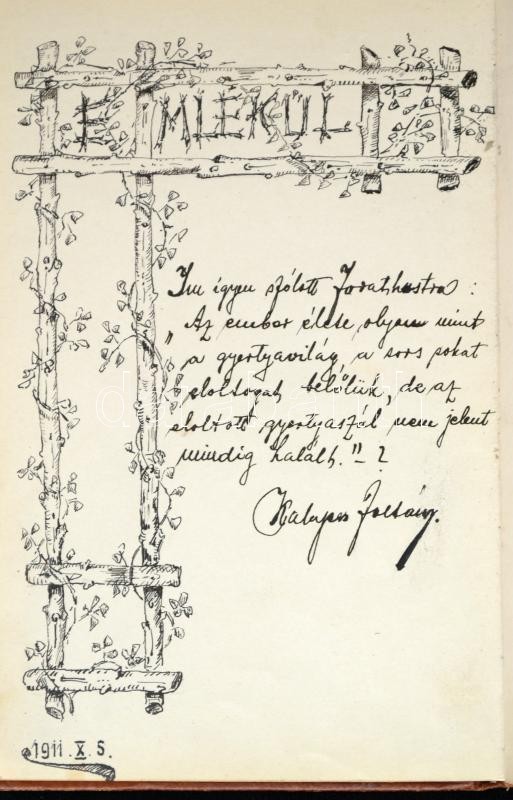 EMLÉKÜL
Im igyen szólott Zorathustra :
"Az ember élete olyan mint
a gyertyavilág, a sors sokat
eloltogat belőlük, de az
eloltott gyertyaszál nem jelent
mindig halált." - ?
Zoltán.
1911. X. 5.